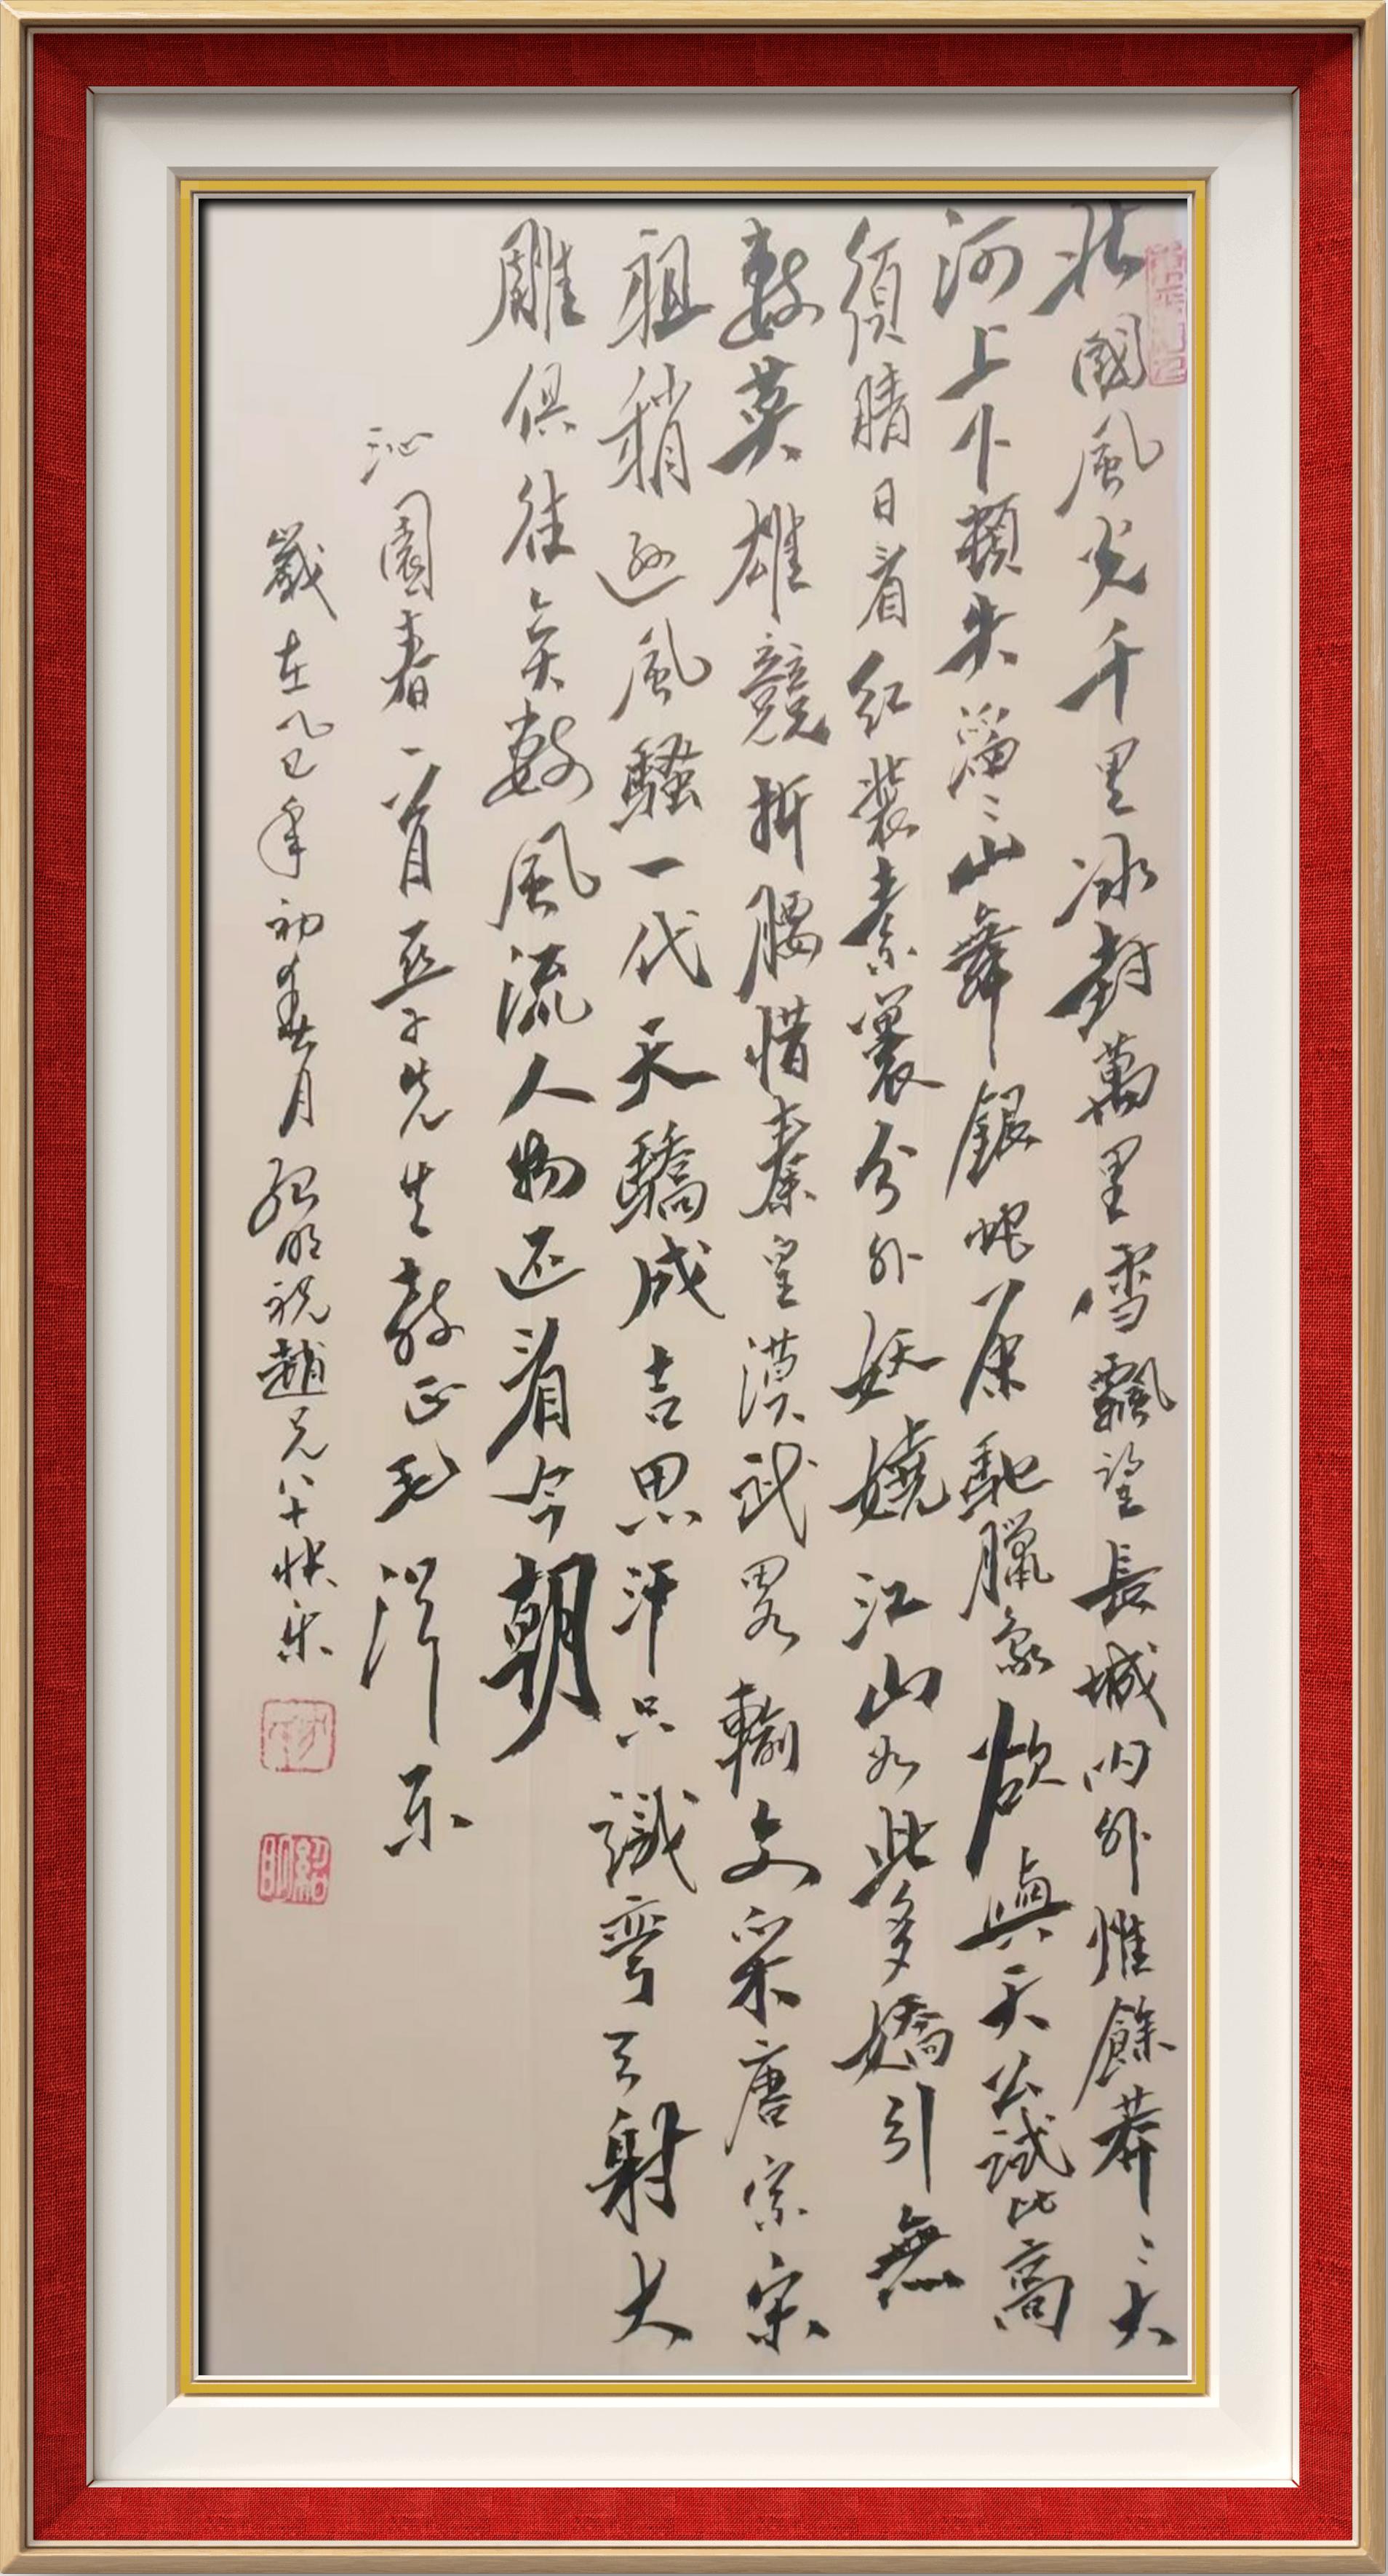 北國風光千里冰封萬里雪飄望長城内外惟餘莽〻大
河上下頓失滔〻山舞銀蛇原馳臘象欲與天公試比高
須晴日看紅裝素裹分外妖嬈江山如此多嬌引無
數英雄競折腰惜秦皇漢武畧輸文采唐宗宋
祖稍遜風騷一代天驕成吉思汗只識彎弓射大
雕俱往矣數風流人物还看今朝
沁園春一首亞子先生教正毛澤东
歲在乙巳年初春月紹明祝趙兄八十快樂
紹明